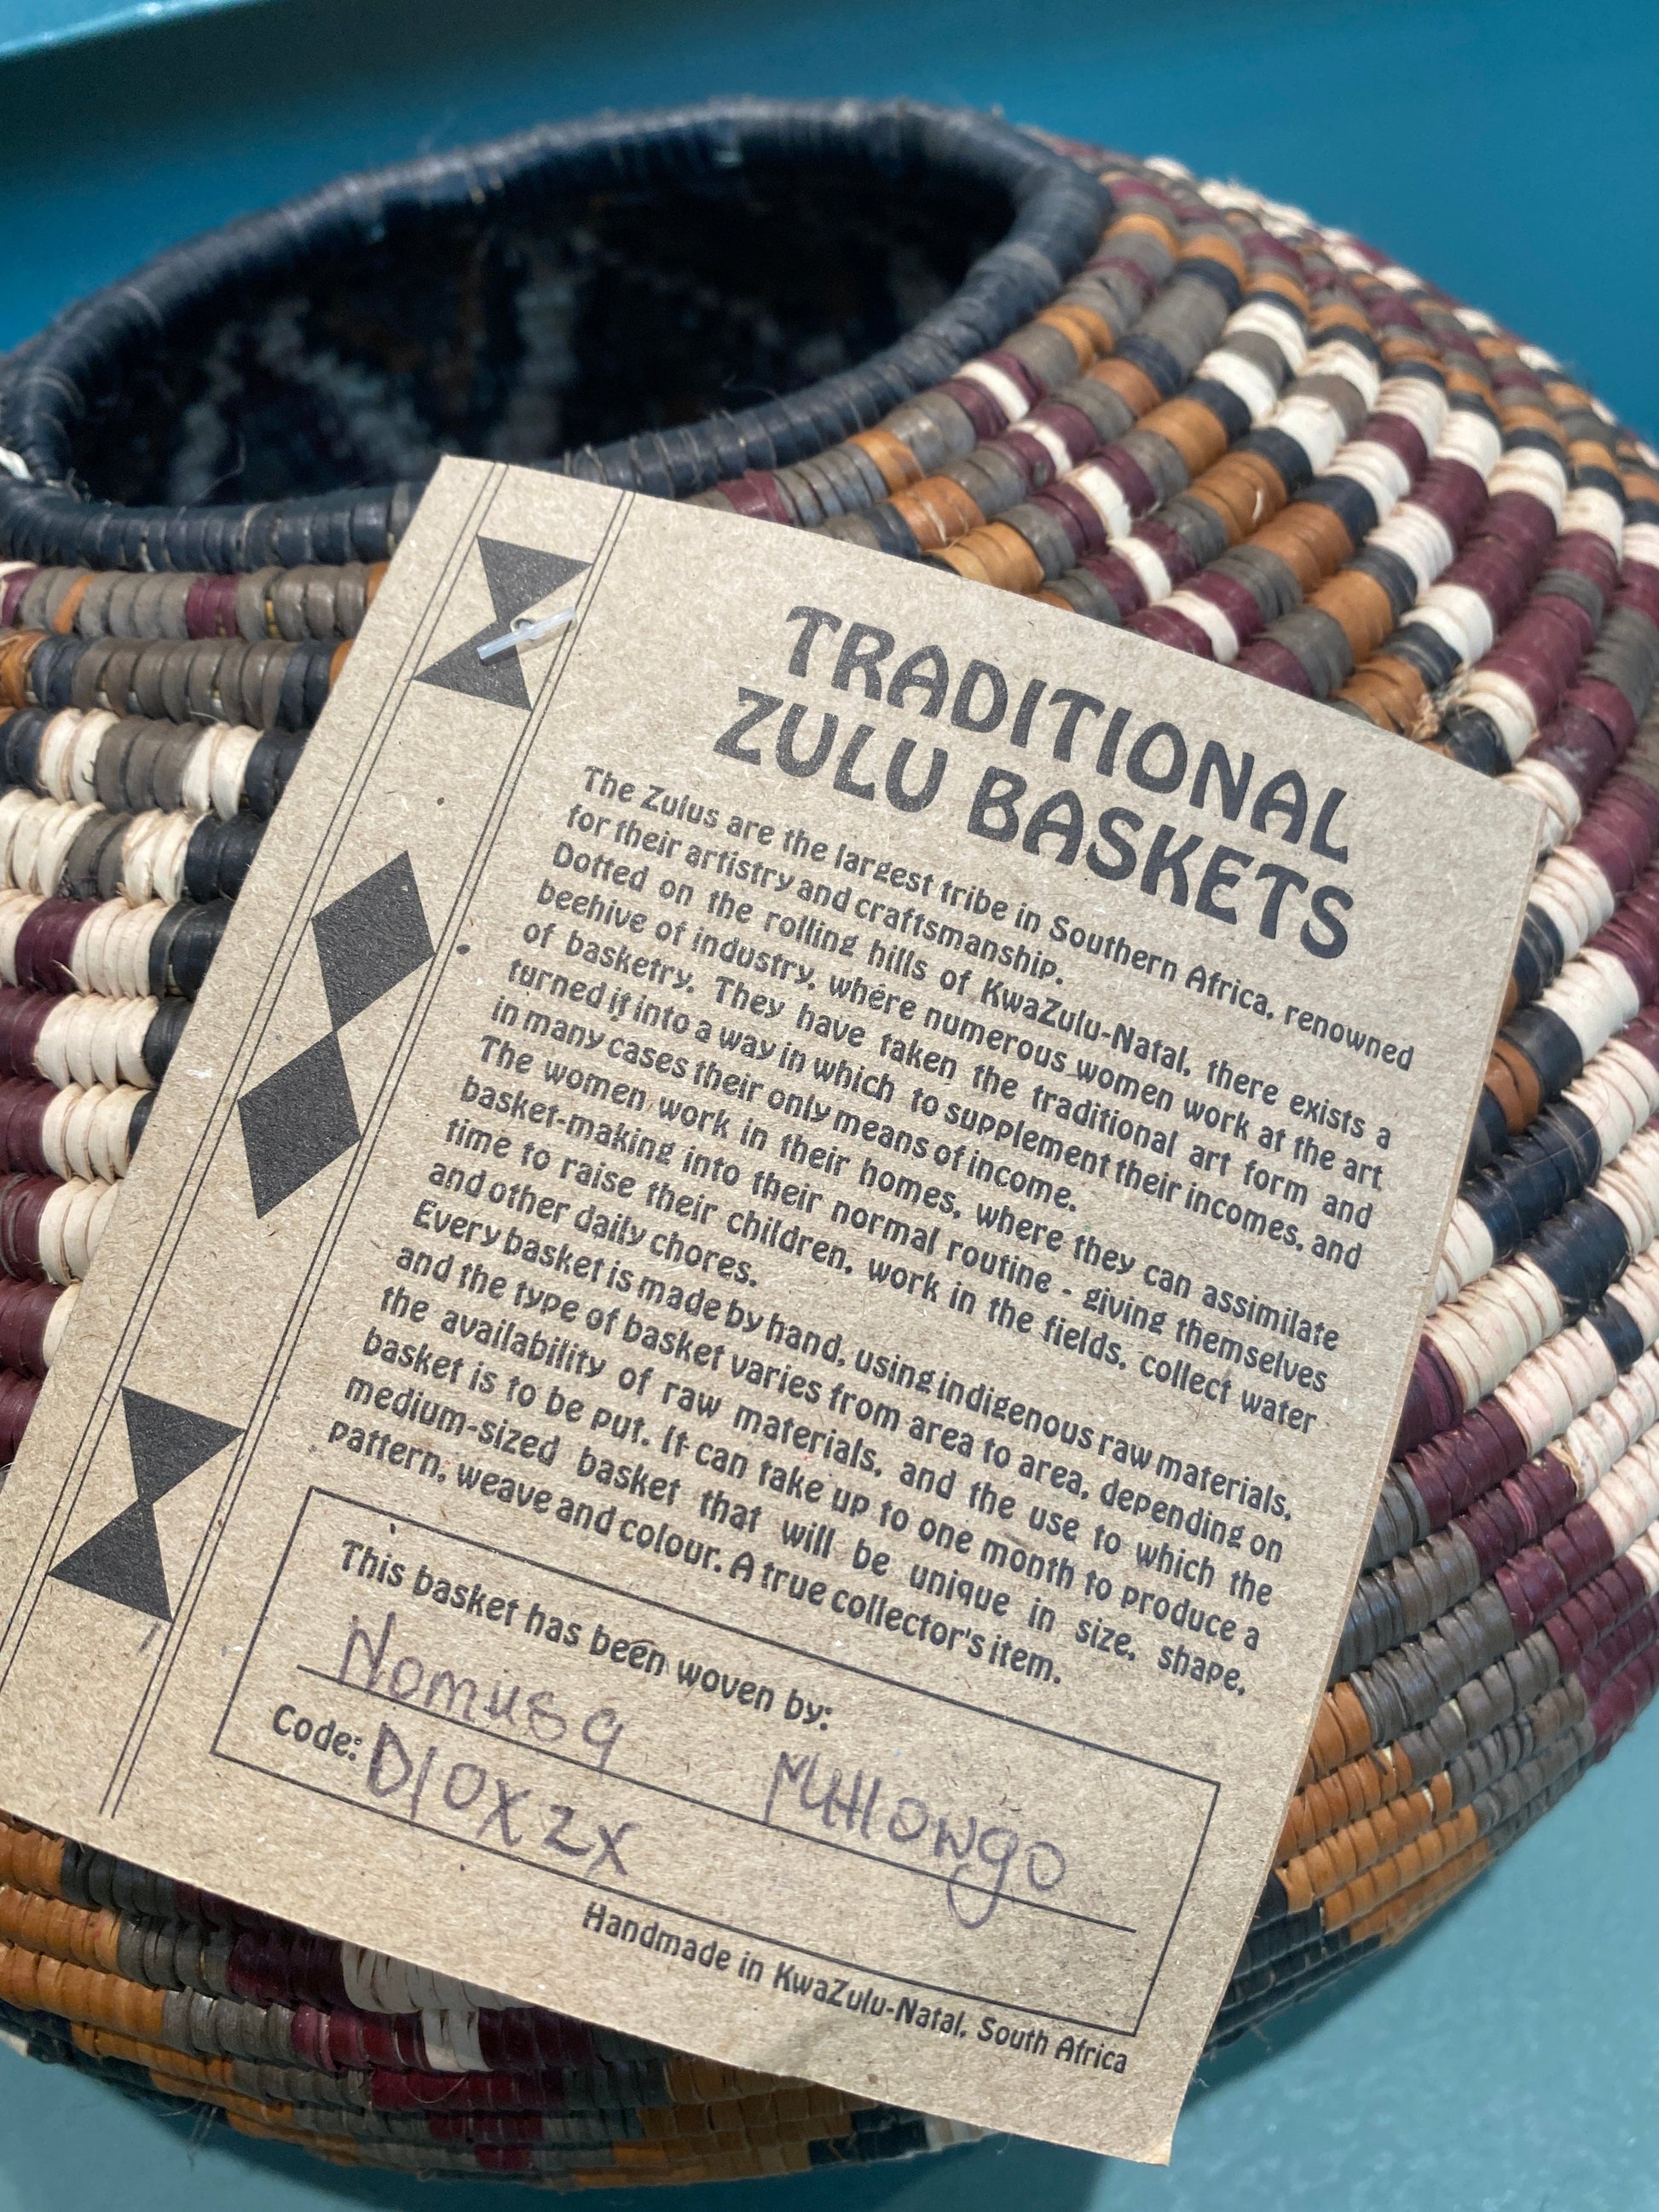 TRADITIONAL
ZULU BASKETS
The Zulus are the largest tribe in Southern Africa, renowned
for their artistry and craftsmanship.
Dotted on the rolling hills of KwaZulu-Natal, there exists a
beehive of industry, where numerous women work at the art
of basketry. They have taken the traditional art form and
turned it into a way in which to supplement their incomes, and
in many cases their only means of income.
The women work in their homes, where they can assimilate
basket-making into their normal routine - giving themselves
time to raise their children, work in the fields, collect water
and other daily chores.
Every basket is made by hand, using indigenous raw materials,
and the type of basket varies from area to area, depending on
the availability of raw materials, and the use to which the
basket is to be put. It can take up to one month to produce a
medium-sized basket that will be unique in size, shape,
pattern, weave and colour. A true collector's item.
This basket has been woven by:
Nomusa MHlongo
Code: D10XZX
Handmade in KwaZulu-Natal, South Africa